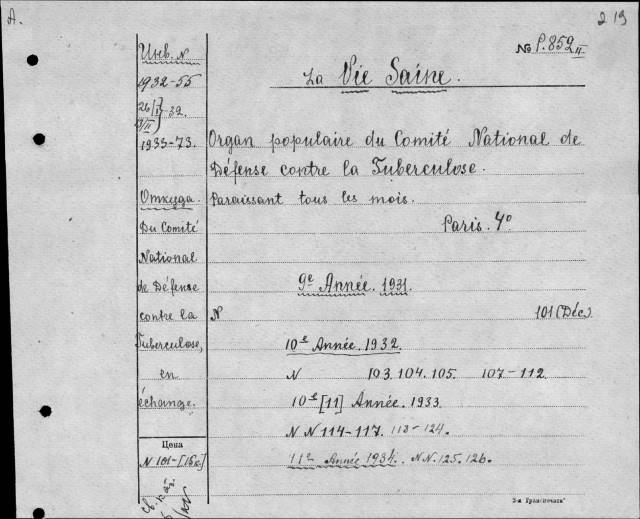 A.
2 19
№ P.852 II
Инв. №
La Vie Saine.
1932-55
26/I
-32.
1933-73.
Organ populaire du Comité National de
Défense contre la Tuberculose.
Откуда.
Paraissant tous les mois.
Du Comité
National
de Défense
contre la
Tuberculose,
en
échange.
Paris. 4°
9e Année. 1931.
N 101 (Déc.)
10e Année. 1932.
N 103. 104. 105. 107-112.
10e [11] Année. 1933.
N N 114-117. 118-124.
Цена
N 101-[15к.]
11e Année 1934. N N. 125. 126.
3-я Гравполшк